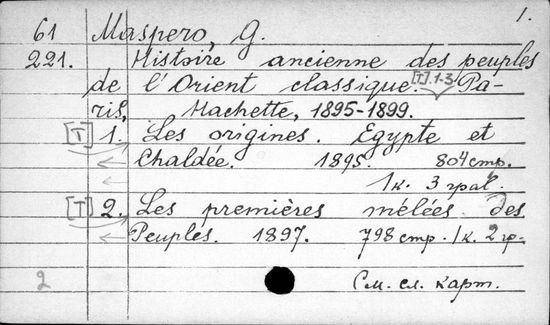 1.
61 Maspero, G.
221. Histoire ancienne des peuples
de l'Orient classique. [T.] 1-3 Pa-
ris, Hachette, 1895-1899.
[T] 1. Les origines. Egypte et
Chaldée. 1895. 804 стр.
1 к. 3 грав.
[T] 2. Les premières mêlées des
Peuples. 1897. 798 стр. 1 к. 2 гр.
2 См. сл. карт.